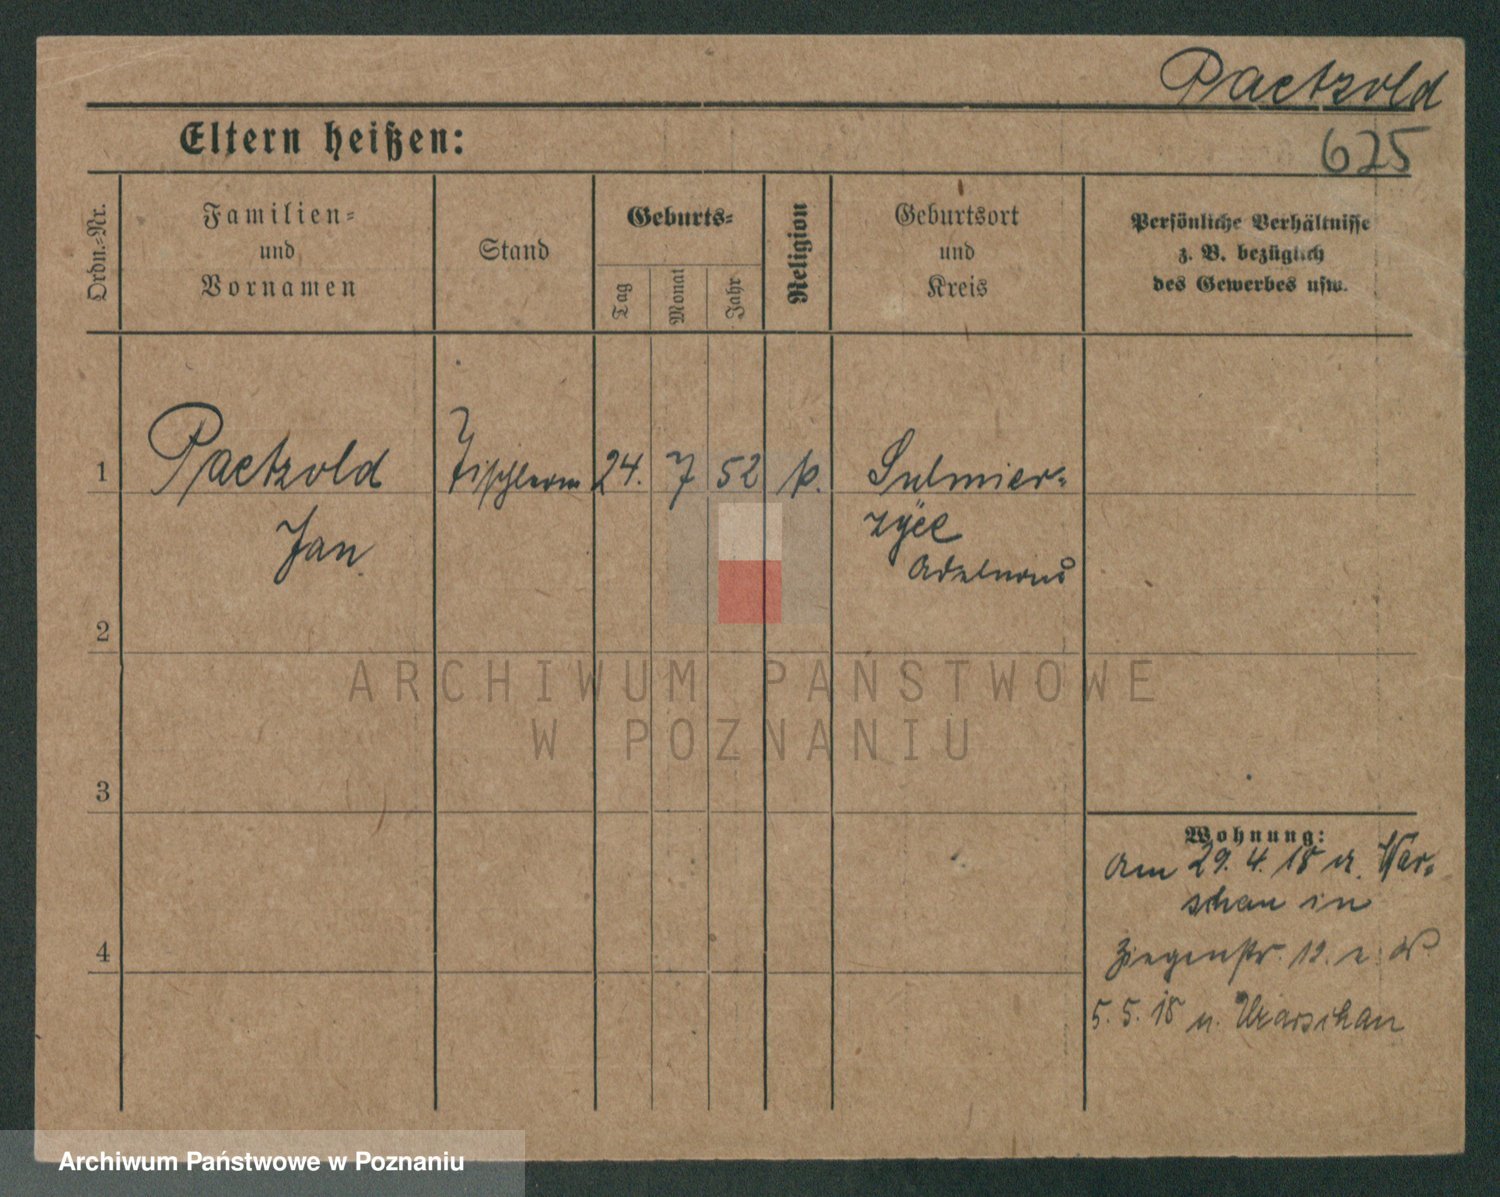 Paetzold
Eltern heißen:
625
Ordn.=Nr.
Familien=
und
Vornamen
Stand
Geburts=
Tag
Monat
Jahr
Religion
Geburtsort
und
Kreis
Persönliche Verhältnisse
z. B. bezüglich
des Gewerbes usw.
1
Paetzold
Jan
Tischlerm
24.
7
52
k.
Sulmier=
zyce
Adelnau
2
3
4
Wohnung:
Am 29. 4. 18 a. War=
schau in
Ziegenstr. 12.
5. 5. 18 n. Warschau
ARCHIWUM PAŃSTWOWE
W POZNANIU
Archiwum Państwowe w Poznaniu